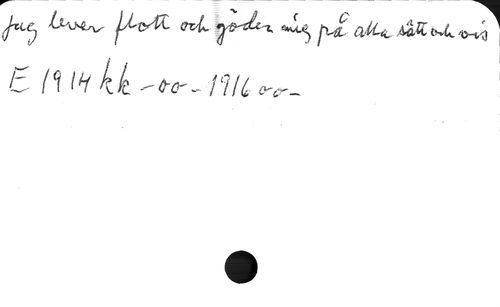 Jag lever flott och göder mig på alla sätt och vis
E 1914 kk -oo- 1916 oo-